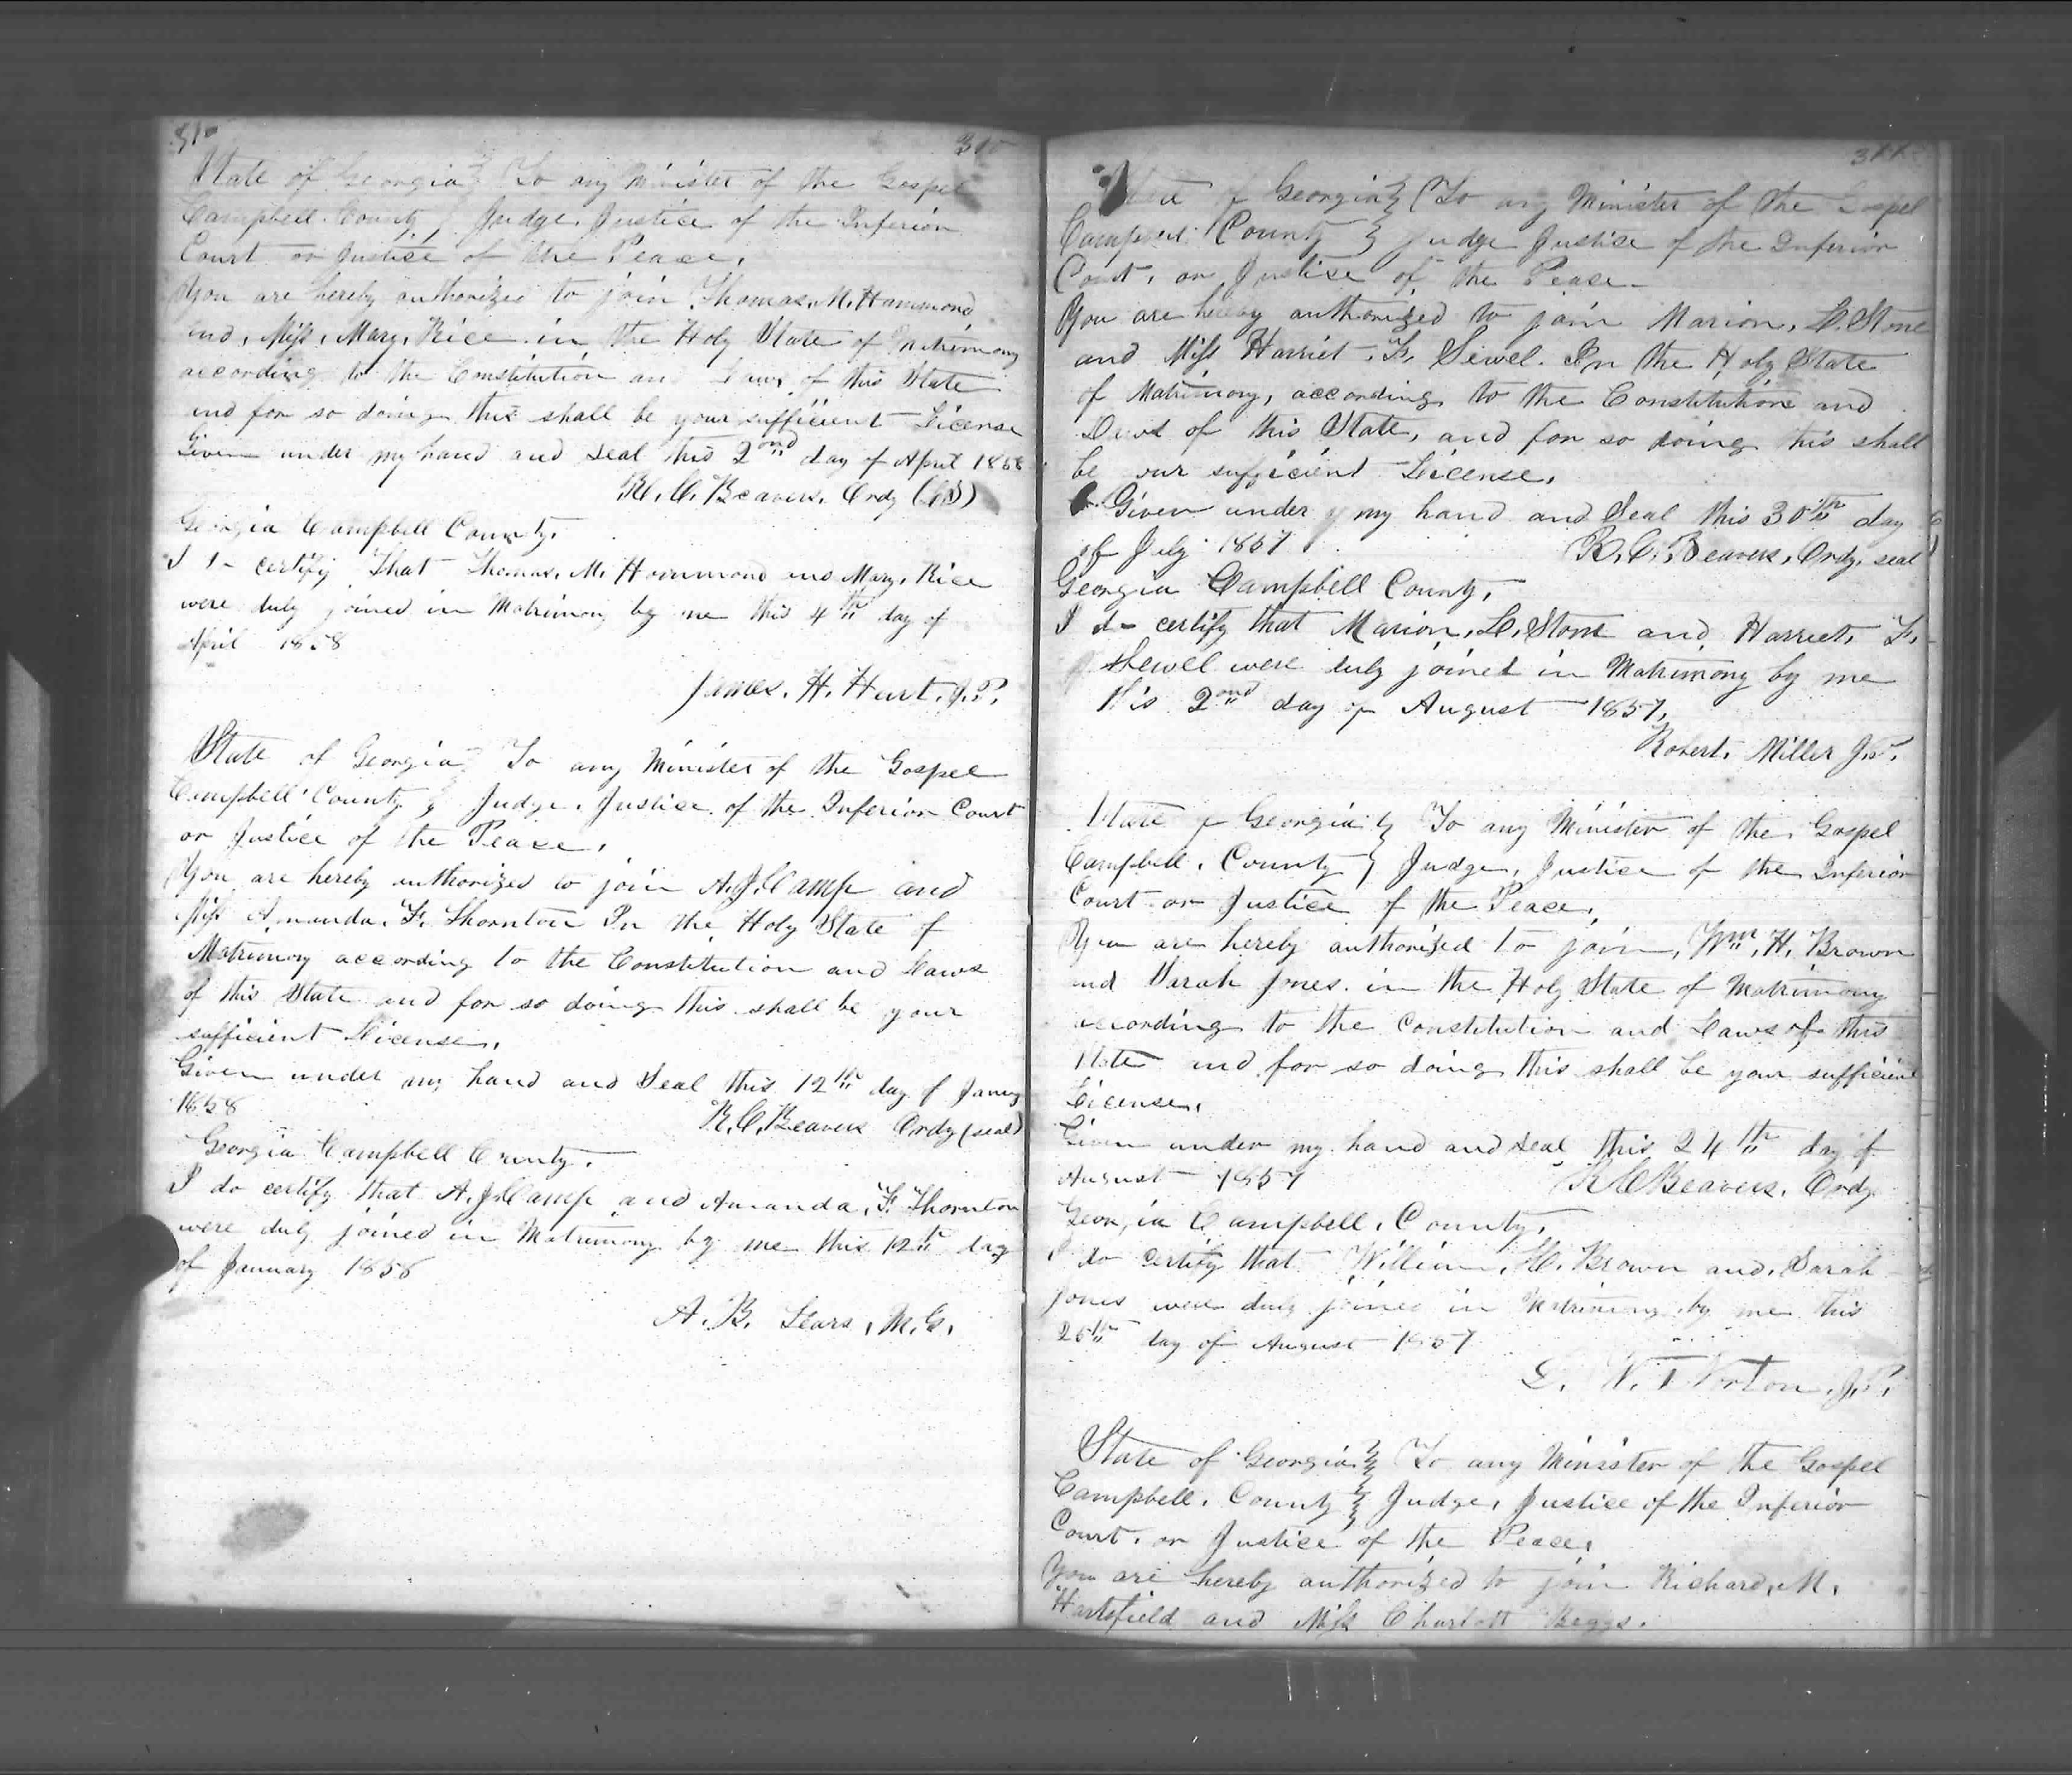 310 310
State of Georgia } To any Minister of the Gospel
Campbell County } Judge, Justice of the Inferior
Court or Justice of the Peace,
You are hereby authorized to join Thomas, M. Hammond
and, Miss, Mary, Rice in the Holy State of Matrimony
according to the Constitution and Laws of this State
and for so doing this shall be your sufficient License
Given under my hand and seal this 2nd day of April 1858
R. C. Beavers, Ordy (LS)
Georgia Campbell County,
I do certify That Thomas, M. Hammond and Mary, Rice
were duly joined in Matrimony by me this 4th day of
April 1858
James, H. Hart, J.P.
State of Georgia } To any Minister of the Gospel
Campbell County } Judge, Justice of the Inferior Court
or Justice of the Peace,
You are hereby authorized to join A. J. Camp and
Miss Amanda, F. Thornton In the Holy State of
Matrimony according to the Constitution and Laws
of this State and for so doing this shall be your
sufficient License,
Given under my hand and Seal this 12th day of Janury
1858 R. C. Beavers Ordy (seal)
Georgia Campbell County,
I do certify that A. J. Camp and Amanda, F. Thornton
were duly joined in Matrimony by me this 12th day
of January 1858
A. B. Sears, M.G.
311
State of Georgia } To any Minister of the Gospel
Campbell County } Judge Justice of the Inferior
Court, or Justice of the Pease
You are hereby authorized to join Marion, L. Stone
and Miss Harriet, F. Sewel. In the Holy State
of Matrimony, according to the Constitution and
Laws of this State, and for so doing this shall
be your sufficient License,
Given under my hand and Seal this 30th day
of July 1857 R. C. Beavers, Ordy, seal
Georgia Campbell County,
I do certify that Marion, L. Stone and Harriet, F.
Shewel were duly joined in Matrimony by me
this 2nd day of August 1857,
Robert, Miller J.P.
State of Georgia } To any Minister of the Gospel
Campbell, County } Judge, Justice of the Inferior
Court or Justice of the Peace,
You are hereby authorized to join, Wm, H. Brown
and Sarah Jones. in the Holy State of Matrimony
according to the Constitution and Laws of this
State and for so doing this shall be your sufficient
License,
Given under my hand and seal this 24th day of
August 1857 R C Beavers, Ordy
Georgia Campbell, County,
I do certify that William, H. Brown and, Sarah
Jones were duly joined in Matrimony by me this
25th day of August 1857
W. T. Norton, J.P.
State of Georgia } To any Minister of the Gospel
Campbell, County } Judge, Justice of the Inferior
Court, or Justice of the Peace,
You are hereby authorized to join Richard, M,
Hartsfield and Miss Charlott Beggs.